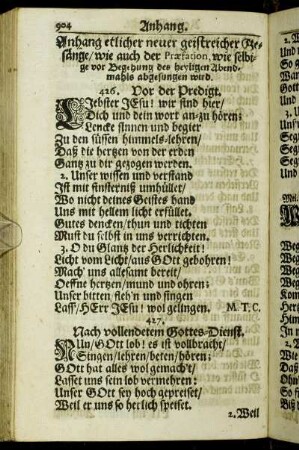 904 Anhang.
Anhang etlicher neuer geistreicher Ge-
sänge/ wie auch der Præfation, wie selbi-
ge vor Begehung des heyligen Abend-
mahls abgesungen wird.
426. Vor der Predigt.
LIebster JEsu! wir sind hier/
Dich und dein wort an-zu hören;
Lencke sinnen und begier
Zu den süssen himmels-lehren/
Daß die hertzen von der erden
Gantz zu dir gezogen werden.
2. Unser wissen und verstand
Ist mit finsterniß umhüllet/
Wo nicht deines Geistes hand
Uns mit hellem licht erfüllet.
Gutes dencken/ thun und tichten
Must du selbst in uns verrichten.
3. O du Glantz der Herlichkeit!
Licht vom Licht/ aus GOtt gebohren!
Mach' uns allesamt bereit/
Oeffne hertzen/ mund und ohren;
Unser bitten/ fleh'n und singen
Lass/ HErr JEsu! wol gelingen. M. T. C.
427.
Nach vollendetem Gottes-Dienst.
NUn/ GOtt lob! es ist vollbracht/
Singen/ lehren/ beten/ hören;
GOtt hat alles wol gemach't/
Lasset uns sein lob vermehren:
Unser GOtt sey hoch gepreiset/
Weil er uns so herlich speiset.
2. Weil